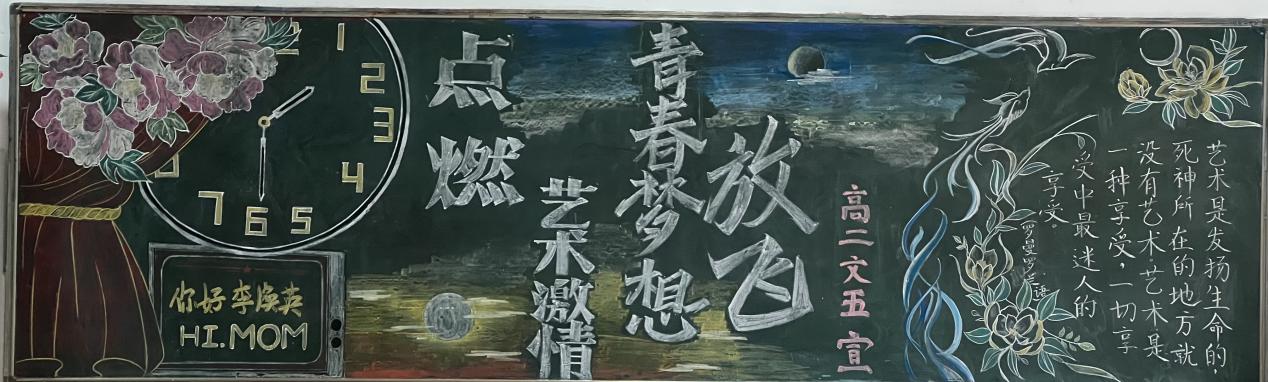 1
2
3
4
5
6
7
你好李焕英
HI.MOM
放飞
青春梦想
点燃
艺术激情
高二文五宣
艺术是发扬生命的,
死神所在的地方就
没有艺术.艺术是
一种享受,一切享
受中最迷人的
享受。
罗曼罗兰语